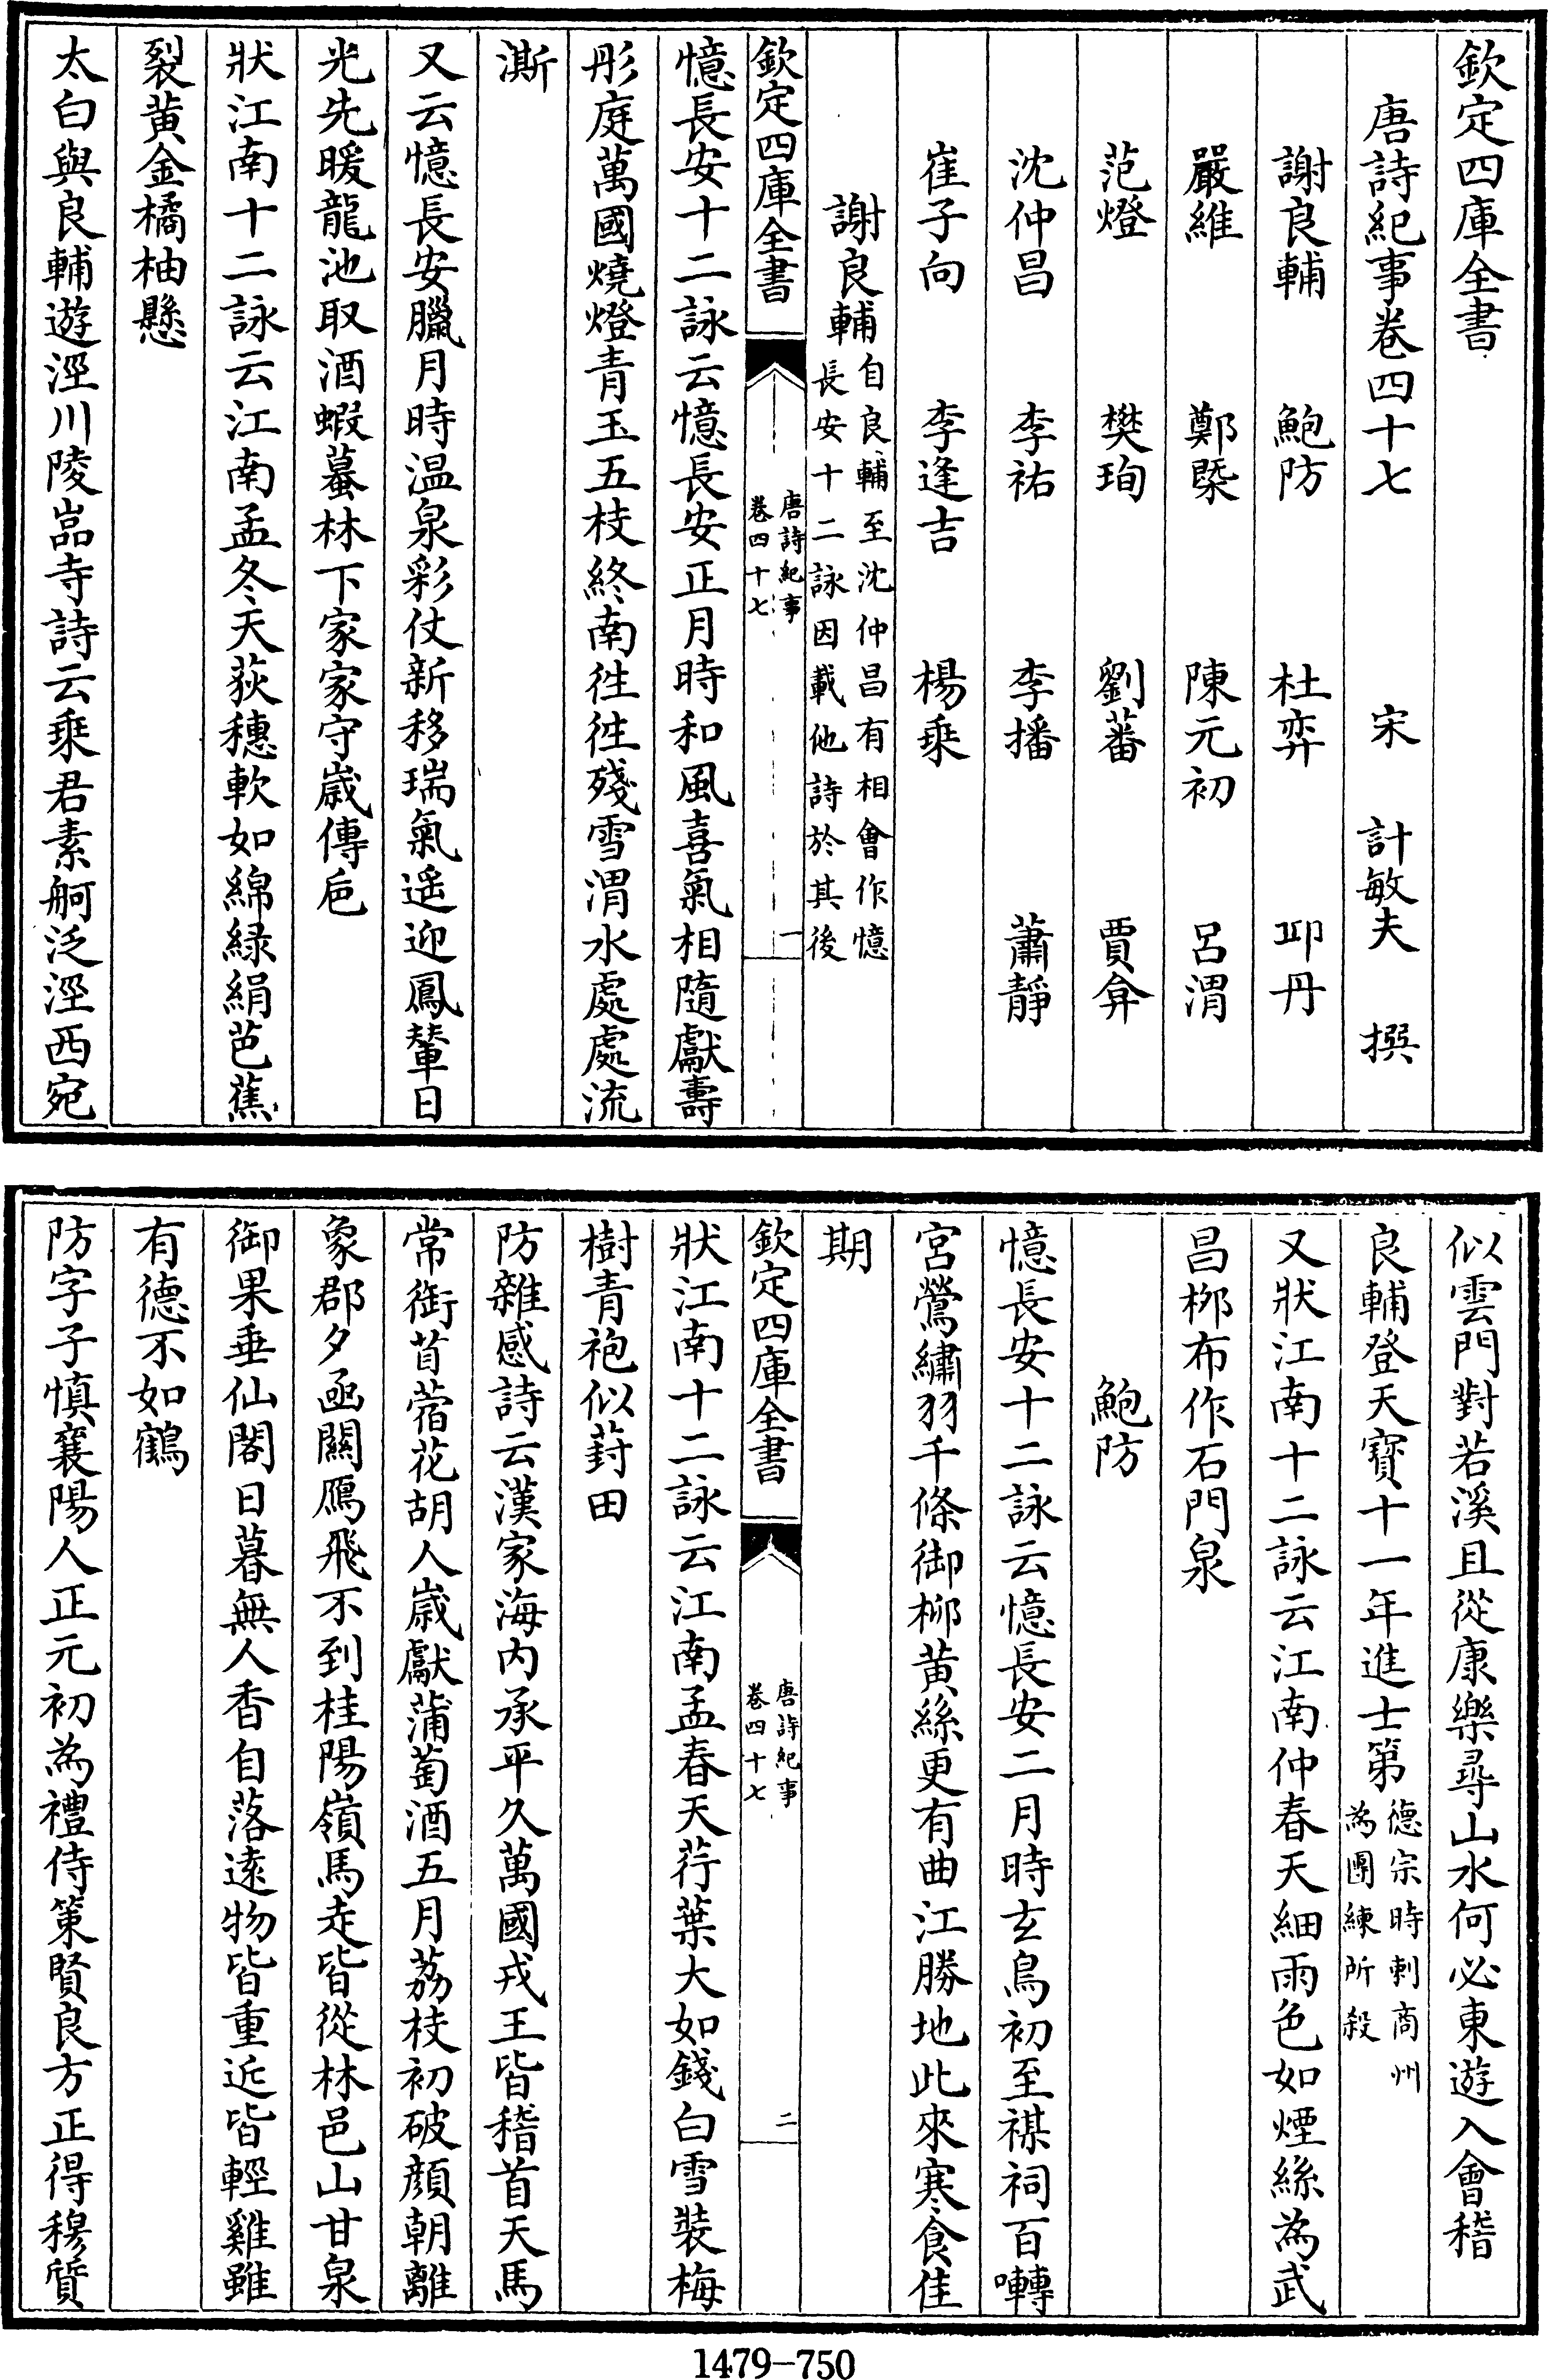 欽定四庫全書
唐詩紀事卷四十七　宋　計敏夫　撰
謝良輔　鮑防　杜弈　丘丹
嚴維　鄭槩　陳元初　呂渭
范燈　樊珣　劉蕃　賈弇
沈仲昌　李祐　李播　蕭靜
崔子向　李逢吉　楊乗
謝良輔自良輔至沈仲昌有相會作憶
長安十二詠因載他詩於其後
欽定四庫全書
唐詩紀事
卷四十七
一
憶長安十二詠云憶長安正月時和風喜氣相隨獻壽
彤庭萬國燒燈青玉五枝終南徃徃殘雪渭水處處流
澌
又云憶長安臘月時温泉彩仗新移瑞氣遥迎鳳輦日
光先暖龍池取酒蝦蟇林下家家守歳傳巵
狀江南十二詠云江南孟冬天荻穗軟如綿緑絹芭蕉
裂黄金橘柚懸
太白與良輔遊涇川陵嵓寺詩云乗君素舸泛涇西宛
似雲門對若溪且從康樂尋山水何必東遊入會稽
良輔登天寶十一年進士第德宗時刺商州
為團練所殺
又狀江南十二詠云江南仲春天細雨色如煙絲為武
昌栁布作石門泉
鮑防
憶長安十二詠云憶長安二月時玄鳥初至禖祠百囀
宮鶯繡羽千條御栁黄絲更有曲江勝地此來寒食佳
期
欽定四庫全書
唐詩紀事
卷四十七
二
狀江南十二詠云江南孟春天荇葉大如錢白雪裝梅
樹青袍似葑田
防雜感詩云漢家海内承平久萬國戎王皆稽首天馬
常銜苜蓿花胡人歳獻蒲萄酒五月荔枝初破顔朝離
象郡夕函關鴈飛不到桂陽嶺馬走皆從林邑山甘泉
御果垂仙閣日暮無人香自落逺物皆重近皆輕雞雖
有德不如鶴
防字子慎襄陽人正元初為禮侍策賢良方正得穆質
1479-750